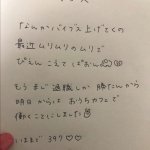 なんかバイブス上げてくの
最近ムリムリのムリで
ぴえん こえて ぱおん
もう まじ 退職しか 勝たんから
明日 からは おうちカフェで
働くことにしました
いままで 397♡♡